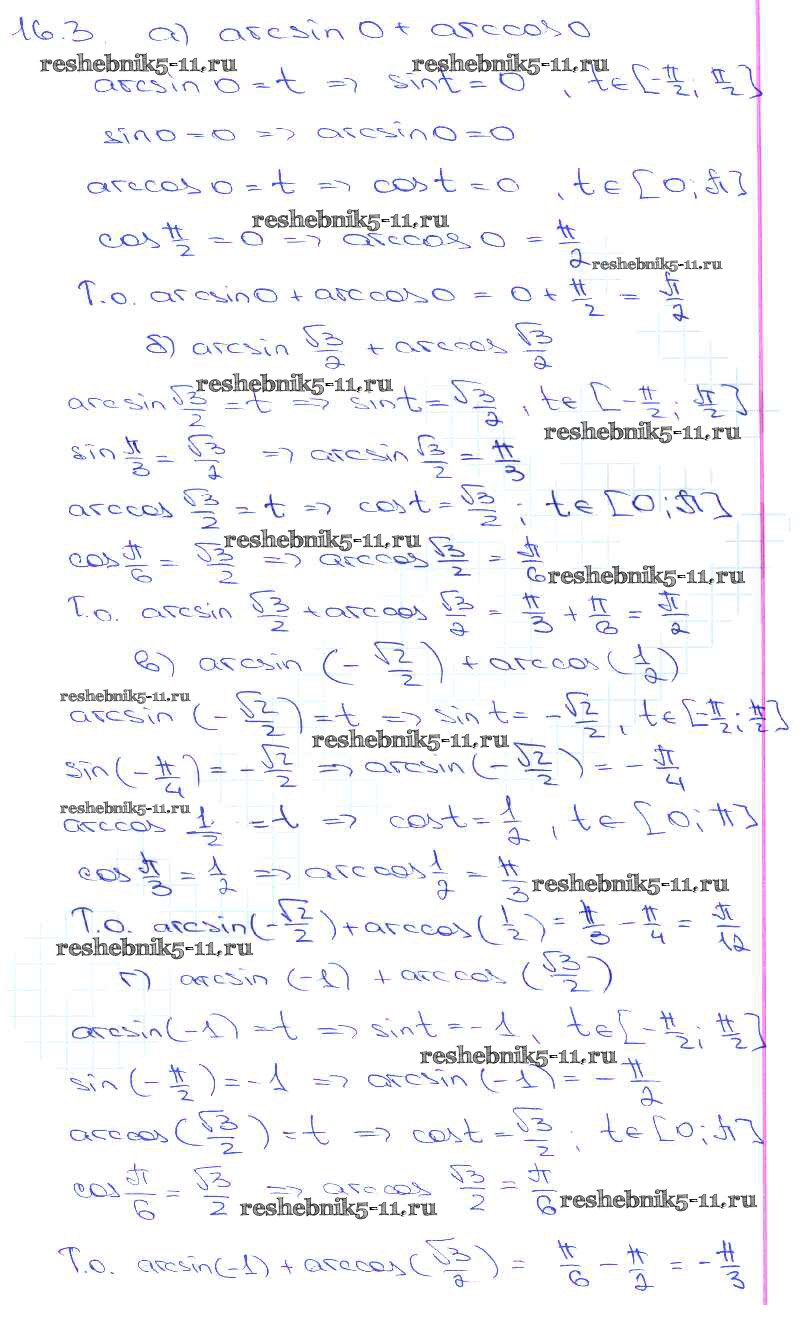 16.3. а) arcsin 0 + arccos 0
reshebnik5-11.ru reshebnik5-11.ru
arcsin 0 = t => sin t = 0, t ∈ [-π/2; π/2]
sin 0 = 0 => arcsin 0 = 0
arccos 0 = t => cos t = 0, t ∈ [0; π]
reshebnik5-11.ru
cos π/2 = 0 => arccos 0 = π/2
reshebnik5-11.ru
Т.о. arcsin 0 + arccos 0 = 0 + π/2 = π/2
б) arcsin √3/2 + arccos √3/2
reshebnik5-11.ru
arcsin √3/2 = t => sin t = √3/2, t ∈ [-π/2; π/2]
reshebnik5-11.ru
sin π/3 = √3/2 => arcsin √3/2 = π/3
arccos √3/2 = t => cos t = √3/2; t ∈ [0; π]
reshebnik5-11.ru
cos π/6 = √3/2 => arccos √3/2 = π/6
reshebnik5-11.ru
Т.о. arcsin √3/2 + arccos √3/2 = π/3 + π/6 = π/2
в) arcsin (-√2/2) + arccos (1/2)
reshebnik5-11.ru
arcsin (-√2/2) = t => sin t = -√2/2, t ∈ [-π/2; π/2]
reshebnik5-11.ru
sin (-π/4) = -√2/2 => arcsin (-√2/2) = -π/4
reshebnik5-11.ru
arccos 1/2 = t => cos t = 1/2, t ∈ [0; π]
cos π/3 = 1/2 => arccos 1/2 = π/3
reshebnik5-11.ru
Т.о. arcsin (-√2/2) + arccos (1/2) = π/3 - π/4 = π/12
reshebnik5-11.ru
г) arcsin (-1) + arccos (√3/2)
arcsin (-1) = t => sin t = -1, t ∈ [-π/2; π/2]
reshebnik5-11.ru
sin (-π/2) = -1 => arcsin (-1) = -π/2
arccos (√3/2) = t => cos t = √3/2; t ∈ [0; π]
cos π/6 = √3/2 => arccos √3/2 = π/6
reshebnik5-11.ru reshebnik5-11.ru
Т.о. arcsin (-1) + arccos (√3/2) = π/6 - π/2 = -π/3